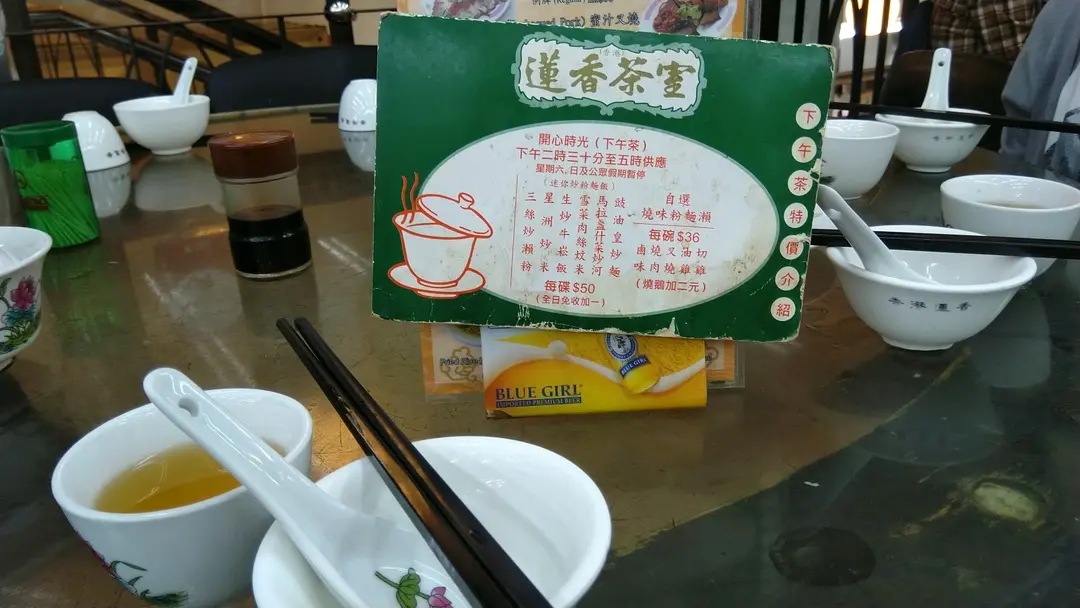 例牌 (Regular)
Pork) 蜜汁叉燒
(香港)
蓮香茶室
開心時光 (下午茶)
下午二時三十分至五時供應
星期六、日及公眾假期暫停
(迷你炒粉麵飯)
豉油皇炒麵
馬拉盞什菜炒河
雪菜肉絲炆米
生炒牛崧飯
星洲炒米
三絲炒瀨粉
每碟 $50
(全日免收加一)
自選
燒味粉麵瀨
每碗$36
切雞
油雞
叉燒
燒肉
鹵味
(燒鵝加二元)
下午茶特價介紹
BLUE GIRL
IMPORTED PREMIUM BEER
BLUE GIRL
Fried
香港蓮香